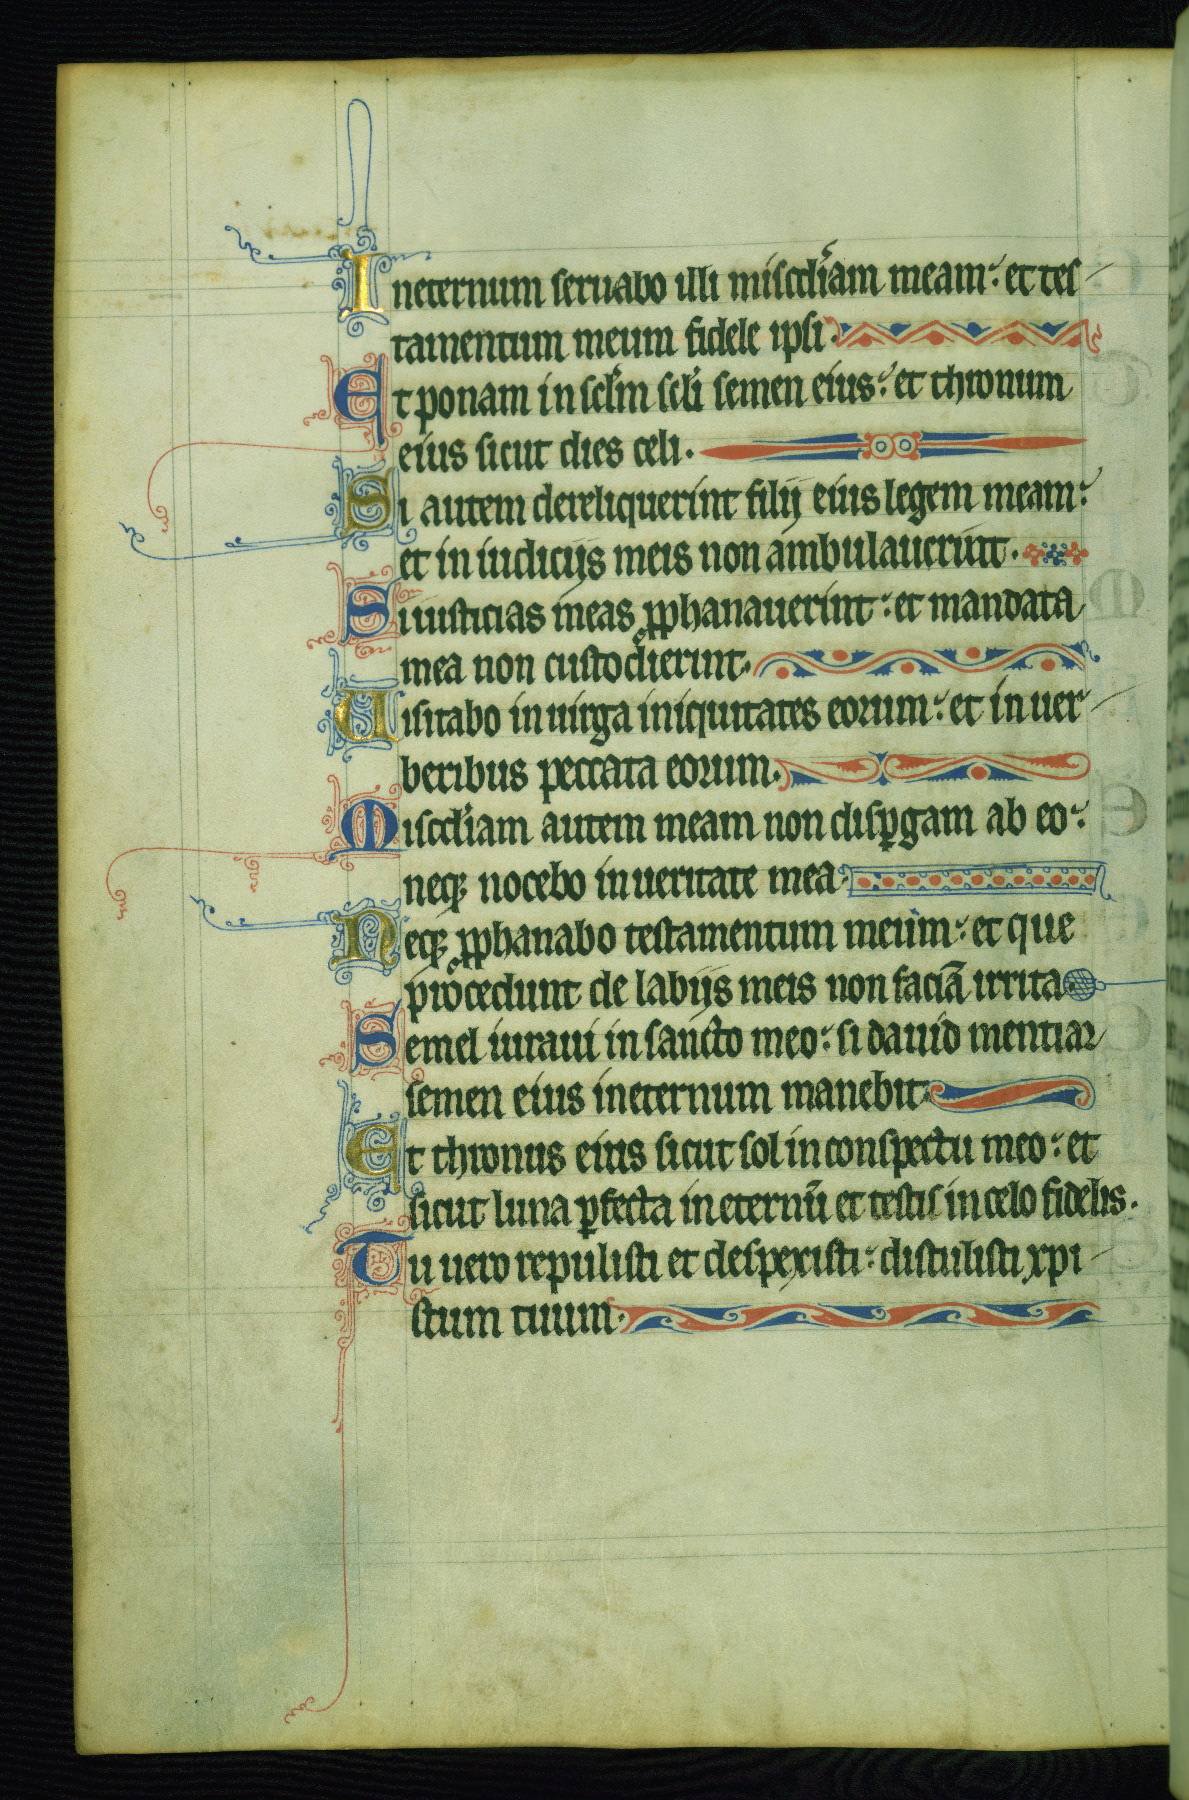 In eternum seruabo illi mis͞cdiam meam: et tes
tamentum meum fidele ipsi.
Et ponam in sc̄lm sc̄li semen eius: et thronum
eius sicut dies celi.
Si autem dereliquerint filij eius legem meam:
et in iudicijs meis non ambulauerint.
Si iusticias meas ꝓphanauerint: et mandata
mea non custodierint.
Uisitabo in uirga iniquitates eorum: et in uer
beribus peccata eorum.
Misc̄diam autem meam non disꝑgam ab eo:
neqꝫ nocebo in ueritate mea.
Neqꝫ ꝓphanabo testamentum meum: et que
procedunt de labijs meis non faciā irrita.
Semel iuraui in sancto meo: si dauid mentiar
semen eius in eternum manebit.
Et thronus eius sicut sol in conspectu meo: et
sicut luna ꝑfecta in eternū et testis in celo fidelis.
Tu uero repulisti et despexisti: distulisti xpi
stum tuum.